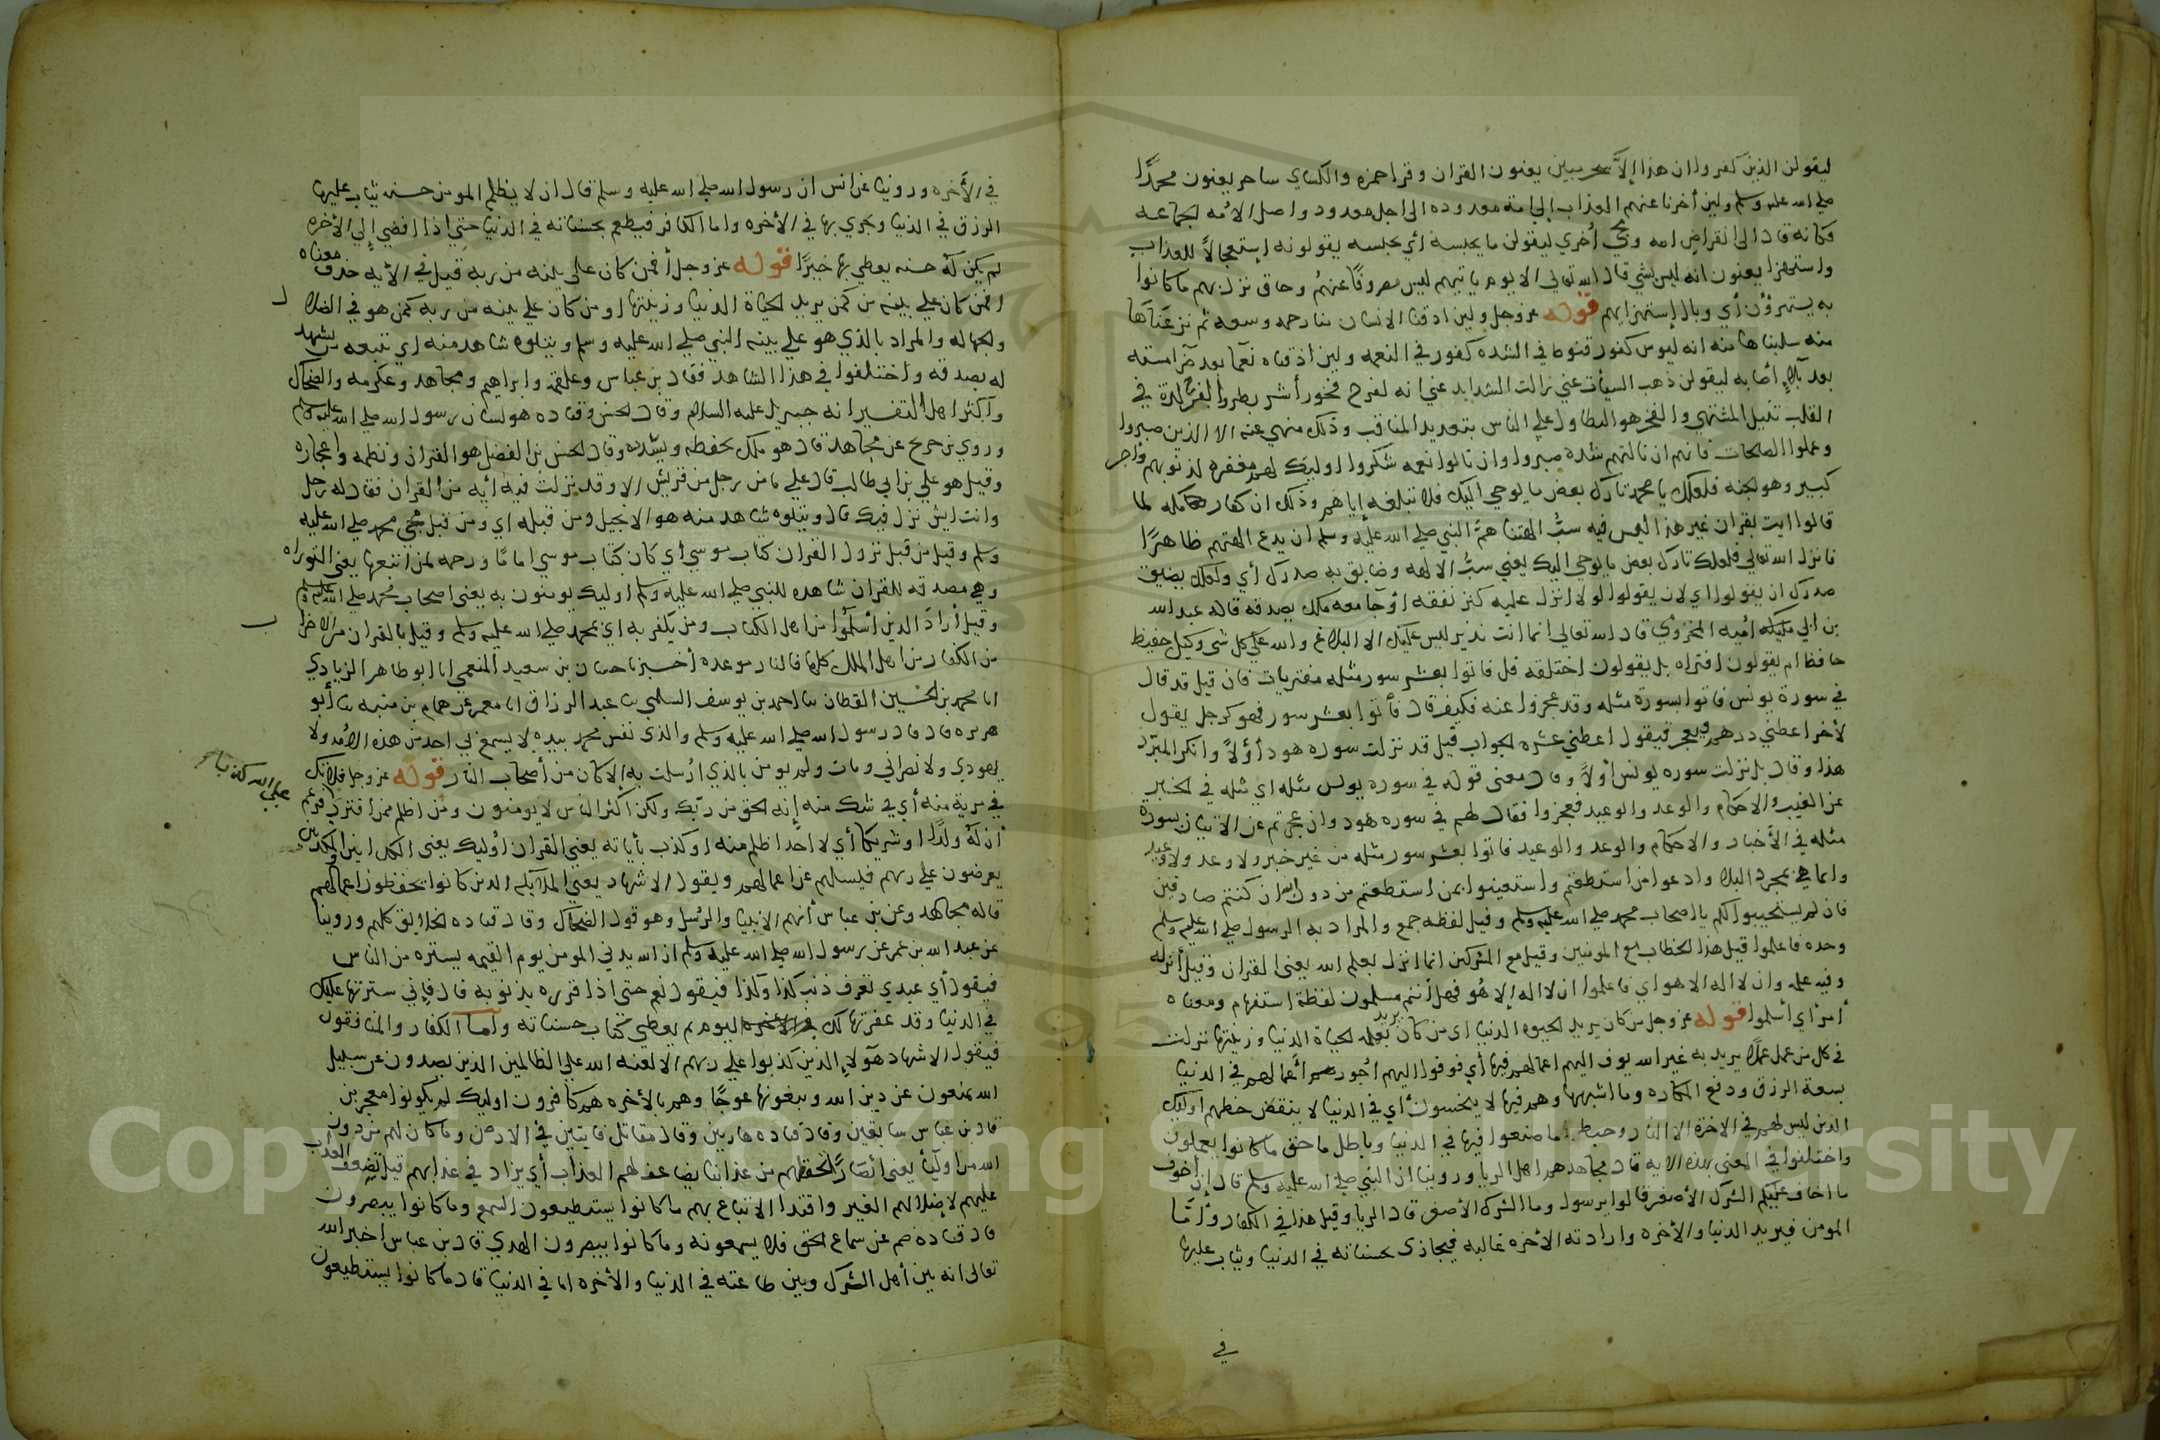 ليقولن الذين كفروا ان هذا إلا سحر مبين يعنون القران وقرا حمزه والكساي ساحر يعنون محمدًا
صلي الله عليه وسلم ولين أخرنا عنهم العذاب إلي امة معدوده الي اجل معدود واصل الأمه الجماعه
فكانه قال الي انقراض امه ومجي أخري ليقولن ما يحبسه أي يحبسه يقولونه إستعجالاً للعذاب
واستهزا يعنون انه ليس بشي قال الله تعالي الا يوم ياتيهم ليس مصروفًا عنهُم وحاق نزل بهم ما كانوا
به يستهزؤن أي وبال إستهزايهم قوله عز وجل ولين اذقنا الانسان منا رحمه وسعه ثم نزعناها
منه سلبناها منه انه ليوس كفور قنوط في الشده كفور في النعمه ولين اذقناه نعما بعد ضرا مسته
بعد بلاء اصابه ليقولن ذهب السيأت عني زالت الشدايد عني انه لفرح فخور أشر بطر والفرح لذة في
القلب تنيل المشتهي والفخر هو التطاول علي الناس بتعديد المناقب وذلك منهي عنه الا الذين صبروا
وعملوا الصالحات فانهم ان نالتهم شده صبروا وان نالوا نعمه شكروا اوليك لهم مغفره لذنوبهم واجر
كبير وهو الجنه فلعلك يا محمد تارك بعض ما يوحي اليك فلا تبلغه إياهم وذلك ان كفار مكه لما
قالوا ايت بقران غير هذا ليس فيه سبُّ الهتنا همَّ النبي صلي الله عليه وسلم ان يدع الهتهم ظاهرًا
فانزل الله تعالي فلعلك تارك بعض ما يوحي اليك يعني سبُّ الالهه وضايق به صدرك أي ولعلك يضيق
صدرك ان يقولوا اي لان يقولوا لولا انزل عليه كنز ننفقه أوجا معه ملك يصدقه قاله عبد الله
بن ابي أميه المخزوي قال الله تعالي انما انت نذير ليس عليك الا البلاغ والله علي كل شي وكيل حفيظ
حافظ ام يقولون افتراه بل يقولون اختلقه قل فاتوا بعشر سور مثله مفتريات فان قيل قد قال
في سورة يونس فاتوا بسورة مثله وقد عجزوا عنه فكيف قال فأتوا بعشر سور فهو كرجل يقول
لاخر اعطني درهم فيعجز فيقول اعطني عشره الجواب قيل قد نزلت سوره هود أوّلاً وانكر المبرّد
هذا وقال بل نزلت سوره يونس أولاً وقال معني قوله في سوره يونس مثله اي مثله في الخبر
عن الغيب والاحكام والوعد والوعيد فعجزوا فقال لهم في سوره هود وان عجزتم عن الاتيان بسورة
مثله في الأخبار والاحكام والوعد والوعيد فاتوا بعشر سور مثله من غير خبر ولا وعد ولا وعيد
وانما هي بمجرد البلاغه وادعوا من استطعتم واستعينوا بمن استطعتم من دون الله ان كنتم صادقين
فان لم يستجيبوا لكم يا اصحاب محمد صلي الله عليه وسلم وقيل لفظه جمع والمراد به الرسول صلي الله عليه وسلم
وحده فاعلموا قيل هذا الخطاب مع المومنين وقيل مع المشركين انما انزل بعلم الله يعني القران وقيل أنزله
وفيه علمه وان لا اله الا هو اي فاعلموا ان لا اله إلا هُو فهل أنتم مسلمون لفظة استفهام ومعناه
أمر أي أسلموا قوله عز وجل من كان يريد الحيوه الدنيا اي من كان يريد بعمله الحياة الدنيا وزينتها نزلت
في كل من عمل عملًا يريد به غير الله نوف اليهم اعمالهم فيها أي نوفوا اليهم اُجور أعمالهم في الدنيا
بسعة الرزق ودفع المكاره وما اشبهها وهم فيها لا يبخسون أي في الدنيا لا ينقض حظهم أوليك
الذين ليس لهم في الاخرة الا النار وحبط ما صنعوا فيها في الدنيا وباطل ماحق ما كانوا يعملون
واختلفوا في المعني بهذه الايه قال مجاهد هم اهل الريا وروينا ان النبي صلي الله عليه وسلم قال إن أخوف
ما اخاف عليكم الشرك الأصغر قالوا يرسول وما الشرك الأصغر قال الريا وقيل هذا في الكفار وأمَّا
المومن فيريد الدنيا والأخره وارادته الأخره غالبه فيجازي بحسناته في الدنيا ويثاب عليها
في
في الأخره وروينا عن انس ان رسول الله صلي الله عليه وسلم قال ان لا يظلم المومن حسنه يثاب عليها
الرزق في الدنيا ويجزي بها في الأخره واما الكافر فيطعم بحسناته في الدنيا حتي اذا افضي إلي الأخره
لم يكن له حسنه يعطي بها خيرًا قوله عز وجل أفمن كان علي بينه من ربه قيل في الأيه حذف معناه
افمن كان علي بينه من كمن يريد الحياة الدنيا وزينتها او من كان علي بينه من ربه كمن هو في الضلا ل
والجهاله والمراد بالذي هو علي بينه النبي صلي الله عليه وسلم ويتلوه شاهد منه اي يتبعه من يشهد
له بصدقه واختلفوا في هذا الشاهد فقال بن عباس وعلقمه وابراهيم ومجاهد وعكرمه والضحاك
وأكثر اهل التفسير انه جبريل عليه السلام وقال الحسن وقتاده هو لسان رسول الله صلي الله عليه وسلم
وروي بن جريح عن مجاهد قال هو ملك يحفظه ويسدده وقال الحسن بن الفضل هو القران ونظمه واعجازه
وقيل هو علي بن ابي طالب قال علي ما من رجل من قريش الا وقد نزلت فيه أيه من القران فقال له رجل
وانت ايش نزل فيك قال ويتلوه شاهد منه هو الانجيل ومن قبله اي ومن قبل مجي محمد صلي الله عليه
وسلم وقيل من قبل نزول القران كتاب موسي أي كان كتاب موسي امامًا ورحمه لمن اتبعها يعني التوراه
وهي مصدقه للقران شاهده للنبي صلي الله عليه وسلم اوليك يومنون به يعني اصحاب محمد صلي الله عليه وسلم
وقيل أراد الذين أسلموا من اهل الكتاب ومن يكفر به اي بمحمد صلي الله عليه وسلم وقيل بالقران من الاحزا ب
من الكفار من اهل الملل كلها فالنار موعده أخبرنا حسان بن سعيد المنيعي انا ابو طاهر الزيادي
انا محمد بن الحسين القطان نا احمد بن يوسف السلمي نا عبد الرزاق انا معمر عن همام بن منبه نا أبو
هريره قال قال رسول الله صلي الله عليه وسلم والذي نفس محمد بيده لا يسمع بي احد من هذه الأمه ولا
يهودي ولا نصراني ومات ولم يومن بالذي ارُسلت به الا كان من أصحاب النار قوله عز وجل فلا تك
في مرية منه أي في شك منه إنه الحق من ربّك ولكن أكثر الناس لا يومنون ومن اظلم ممن افتري علي الله كذبا فزعم
أن له ولدًا او شريكا أي لا احد اظلم منه اوكذب بأياته يعني القران اوليك يعني الكاذبين والمكذبين
يعرضون علي ربهم فيسالهم عن اعمالهم ويقول الاشهاد يعني الملايكه الذين كانوا يحفظون اعمالهم
قاله مجاهد وعن بن عباس أنهم الانبيا والرسل وهو قول الضحاك وقال قتاده الخلايق كلهم وروينا
عن عبد الله بن عمر عن رسول الله صلي الله عليه وسلم ان الله يدني المومن يوم القيمه يستره من الناس
فيقول أي عبدي تعرف ذنب كذا وكذا فيقول نعم حتي اذا قرره بذنوبه قال فإني سترتها عليك
في الدنيا وقد غفرتها لك اليوم ثم يعطي كتاب حسناته وأما الكفار والمنافقون
فيقول الاشهاد هولاء الذين كذبوا علي ربهم الا لعنه الله علي الظالمين الذين يصدون عن سبيل
الله يمنعون عن دين الله ويبغونها عوجًا وهم بالأخره هم كافرون اوليك لم يكونوا معجزين
قال بن عباس سابقين وقال قتاده هاربين وقال مقاتل فايتين في الارض وما كان لهم من دون
الله من اوليأ يعني انصارًا لحفظهم من عذابنا يضاعف لهم العذاب أي يزاد في عذابهم قيل تضعف العذاب
عليهم لإضلالهم الغير واقتدا الاتباع بهم ما كانوا يستطيعون السمع وما كانوا يبصرون
قال قتاده صم عن سماع الحق فلا يسمعونه وما كانوا يبصرون الهدي قال بن عباس اخبر الله
تعالي انه بين أهل الشرك وبين طاعته في الدنيا والأخره اما في الدنيا قال ما كانوا يستطيعون
Copyright © King Saud University